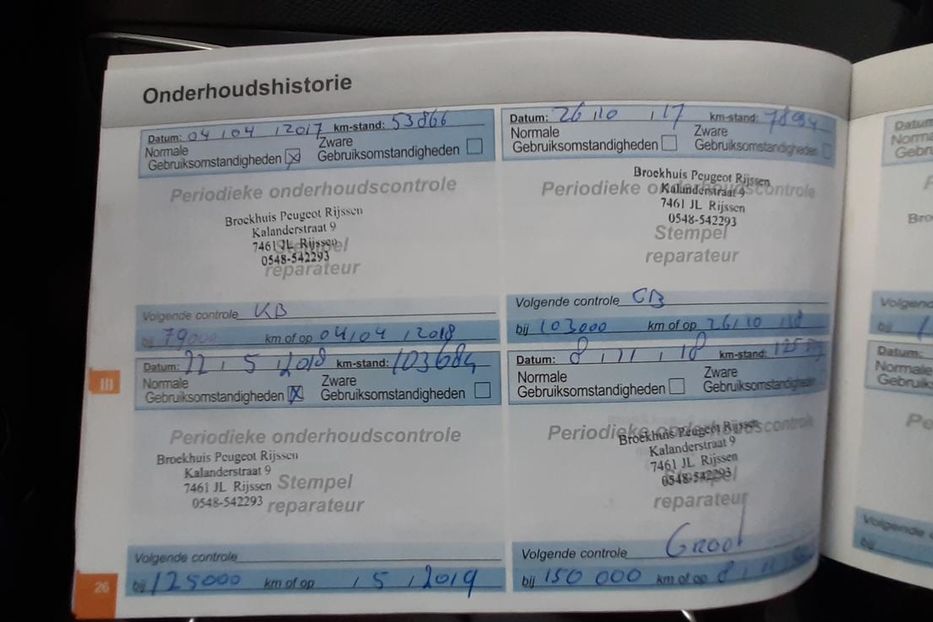 Onderhoudshistorie
Datum: 04 / 04 / 2017 km-stand: 53866
Normale Zware
Gebruiksomstandigheden ☒ Gebruiksomstandigheden ☐
Periodieke onderhoudscontrole
Broekhuis Peugeot Rijssen
Kalanderstraat 9
7461 JL Rijssen
0548-542293
Stempel
reparateur
Volgende controle KB
bij 79000 km of op 04 / 04 / 2018
Datum: 26 / 10 / 17 km-stand:
Normale Zware
Gebruiksomstandigheden ☐ Gebruiksomstandigheden ☐
Periodieke onderhoudscontrole
Broekhuis Peugeot Rijssen
Kalanderstraat 9
7461 JL Rijssen
0548-542293
Stempel
reparateur
Volgende controle CB
bij 103000 km of op 26 / 10 / 18
Datum: 22 / 5 / 2018 km-stand: 103684
Normale Zware
Gebruiksomstandigheden ☒ Gebruiksomstandigheden ☐
Periodieke onderhoudscontrole
Broekhuis Peugeot Rijssen
Kalanderstraat 9
7461 JL Rijssen
0548-542293
Stempel
reparateur
Volgende controle
bij 125000 km of op / 5 / 2019
Datum: 8 / 11 / 18 km-stand:
Normale Zware
Gebruiksomstandigheden ☐ Gebruiksomstandigheden
Periodieke onderhoudscontrole
Broekhuis Peugeot Rijssen
Kalanderstraat 9
7461 JL Rijssen
0548-542293
Stempel
reparateur
Volgende controle Groot
bij 150 000 km of op 8 / 11
III
26
Datum:
Volgende
bij
Datum:
Normale
Volgende
bij